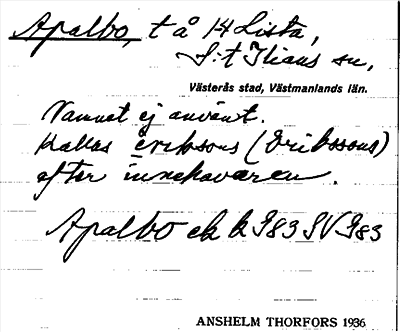 Apalbo, t å 14 Lista,
S:t Ilians sn,
Västerås stad, Västmanlands län.
Namnet ej använt.
Kallas erikssons (Erikssons)
efter innehavaren.
Apalbo ek k J983 SV J983
ANSHELM THORFORS 1936